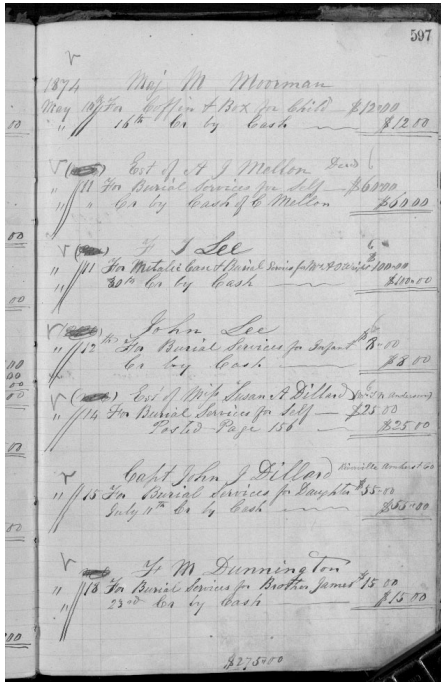 597
1874 Maj M Moorman
May 10 For Coffin & Box for Child - $12.00
" 16th Cr by Cash $12.00
Est of A J Mellon Decd
" 11 For Burial Services for Self - $60.00
" " Cr by Cash of C Mellon $60.00
F J Lee
" 11 For Metalic Case & Burial Services for $100.00
30th Cr by Cash $100.00
John Lee
" 12 For Burial Services for Infant $8.00
Cr by Cash $8.00
Est of Miss Susan A Dillard
" 14 For Burial Services for Self - $25.00
Posted Page 156 $25.00
Capt John J Dillard Amherst Co
" 15 For Burial Services for Daughter $55.00
July 11th Cr by Cash $55.00
F M Dunnington
" 18 For Burial Services for Brother James $15.00
" 23rd Cr by Cash $15.00
$275.00